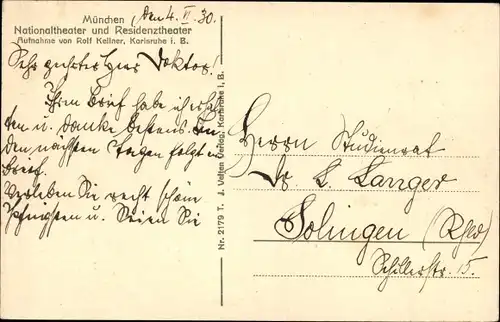 München
Nationaltheater und Residenztheater
Aufnahme von Rolf Kellner, Karlsruhe i. B.
den 4. VI. 30.
Sehr geehrter Herr Doktor!
Ihren Brief habe ich erhal
ten u. danke bestens. In
den nächsten Tagen folgt
Brief.
Verleben Sie recht schöne
Pfingsten u. Seien Sie
Nr. 2179 T. J. Velten Verlag, Karlsruhe i. B.
Herrn Studienrat
Dr. L. Langer
Solingen (Rhld)
Schillerstr. 15.